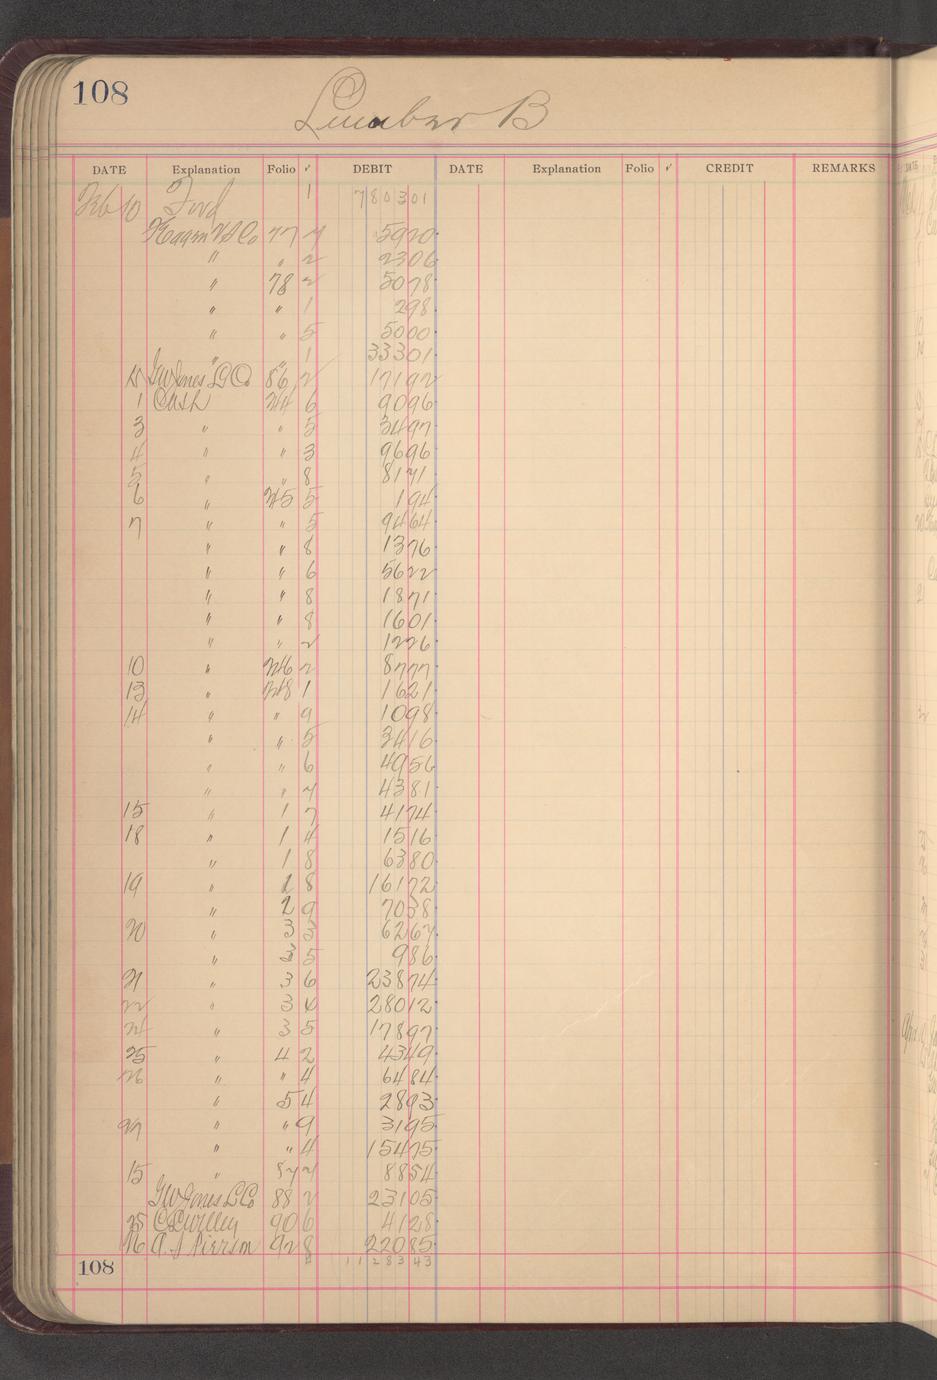 108
Lumber B
DATE Explanation Folio √ DEBIT DATE Explanation Folio √ CREDIT REMARKS
Feb 10 Ford 1 780301
77 5920
" " 2 2306
" 78 2 5078
" " 1 298
" " 5 5000
" " 1 33301
GW Jones L Co 86 2 17192
1 Cash 244 6 9096
3 " " 5 3497
4 " " 3 9696
5 " " 8 8171
6 " 245 5 194
7 " " 5 9464
" " 8 1376
" " 6 5622
" " 8 1871
" " 8 1601
" " 2 1226
10 " 246 2 8777
13 " 248 1 1621
14 " " 9 1098
" " 5 3416
" " 6 4956
" " 7 4381
15 " 1 7 4174
18 " 1 4 1516
" 1 8 6380
19 " 2 8 16172
" 2 9 7038
20 " 3 3 6267
" 3 5 986
21 " 3 6 23874
22 " 3 6 28012
24 " 3 5 17897
25 " 4 2 4349
26 " " 4 6484
" 5 4 2893
27 " " 9 3195
" " 4 15475
15 " 8854
GW Jones L Co 88 2 23105
25 90 6 4128
26 A. S Pierson 92 8 22085
108 1128343